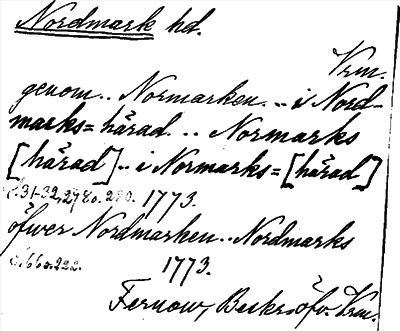 Nordmark hd.
Vrm.
genom.. Normarken.. i Nord-
marks=härad... Normarks
[härad].. i Normarks=[härad]
1773.
öfver Nordmarken.. Nordmarks
1773.
Fernow, Beskr. öfv. Vrm.